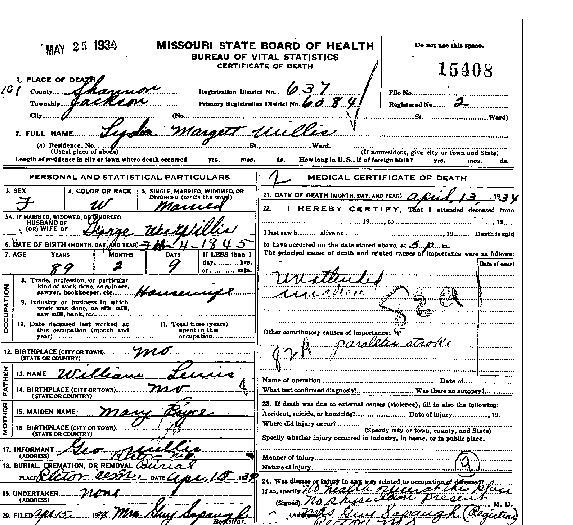 MAY 25 1934
MISSOURI STATE BOARD OF HEALTH
BUREAU OF VITAL STATISTICS
CERTIFICATE OF DEATH
Do not use this space.
15408
1. PLACE OF DEATH
County Shannon
Registration District No. 637
File No.
Township Jackson
Primary Registration District No. 6084
Registered No. 2
City (No. St. Ward)
2. FULL NAME Lydia Margett Willis
(a) Residence. No. St. Ward.
(Usual place of abode) (If nonresident, give city or town and State)
Length of residence in city or town where death occurred yrs. mos. ds. How long in U.S., if of foreign birth? yrs. mos. ds.
PERSONAL AND STATISTICAL PARTICULARS
3. SEX F
4. COLOR OR RACE W
5. SINGLE, MARRIED, WIDOWED, OR DIVORCED (write the word) Married
5A. IF MARRIED, WIDOWED, OR DIVORCED
HUSBAND OF
(OR) WIFE OF George Willis
6. DATE OF BIRTH (MONTH, DAY, AND YEAR) 4-1845
7. AGE YEARS 89 MONTHS 2 DAYS 9 If LESS than 1 day, hrs. or min.
OCCUPATION
8. Trade, profession, or particular kind of work done, as spinner, sawyer, bookkeeper, etc. Housewife
9. Industry or business in which work was done, as silk mill, saw mill, bank, etc.
10. Date deceased last worked at this occupation (month and year)
11. Total time (years) spent in this occupation
12. BIRTHPLACE (CITY OR TOWN) Mo
(STATE OR COUNTRY)
FATHER
13. NAME William Lewis
14. BIRTHPLACE (CITY OR TOWN) Mo
(STATE OR COUNTRY)
MOTHER
15. MAIDEN NAME Mary
16. BIRTHPLACE (CITY OR TOWN)
(STATE OR COUNTRY)
17. INFORMANT Geo Willis
(ADDRESS) Mo.
18. BURIAL, CREMATION, OR REMOVAL Burial
PLACE DATE Apr 15 1934
19. UNDERTAKER none
(ADDRESS)
20. FILED Apr 15 Mrs Guy
Registrar
MEDICAL CERTIFICATE OF DEATH
21. DATE OF DEATH (MONTH, DAY, AND YEAR) April 13, 1934
22. I HEREBY CERTIFY, That I attended deceased from
, 19 , to , 19
I last saw h alive on , 19 Death is said
to have occurred on the date stated above, at 5 p. m.
The principal cause of death and related causes of importance were as follows:
Date of onset
Other contributory causes of importance:
stroke
Name of operation Date of
What test confirmed diagnosis? Was there an autopsy?
23. If death was due to external causes (violence), fill in also the following:
Accident, suicide, or homicide? Date of injury , 19
Where did injury occur?
(Specify city or town, county, and State)
Specify whether injury occurred in industry, in home, or in public place.
Manner of injury
Nature of injury
24. Was disease or injury in any way related to occupation of deceased?
If so, specify No health
No physician present
(Signed) Mrs Guy (Registrar) M. D.
(Address) Mo